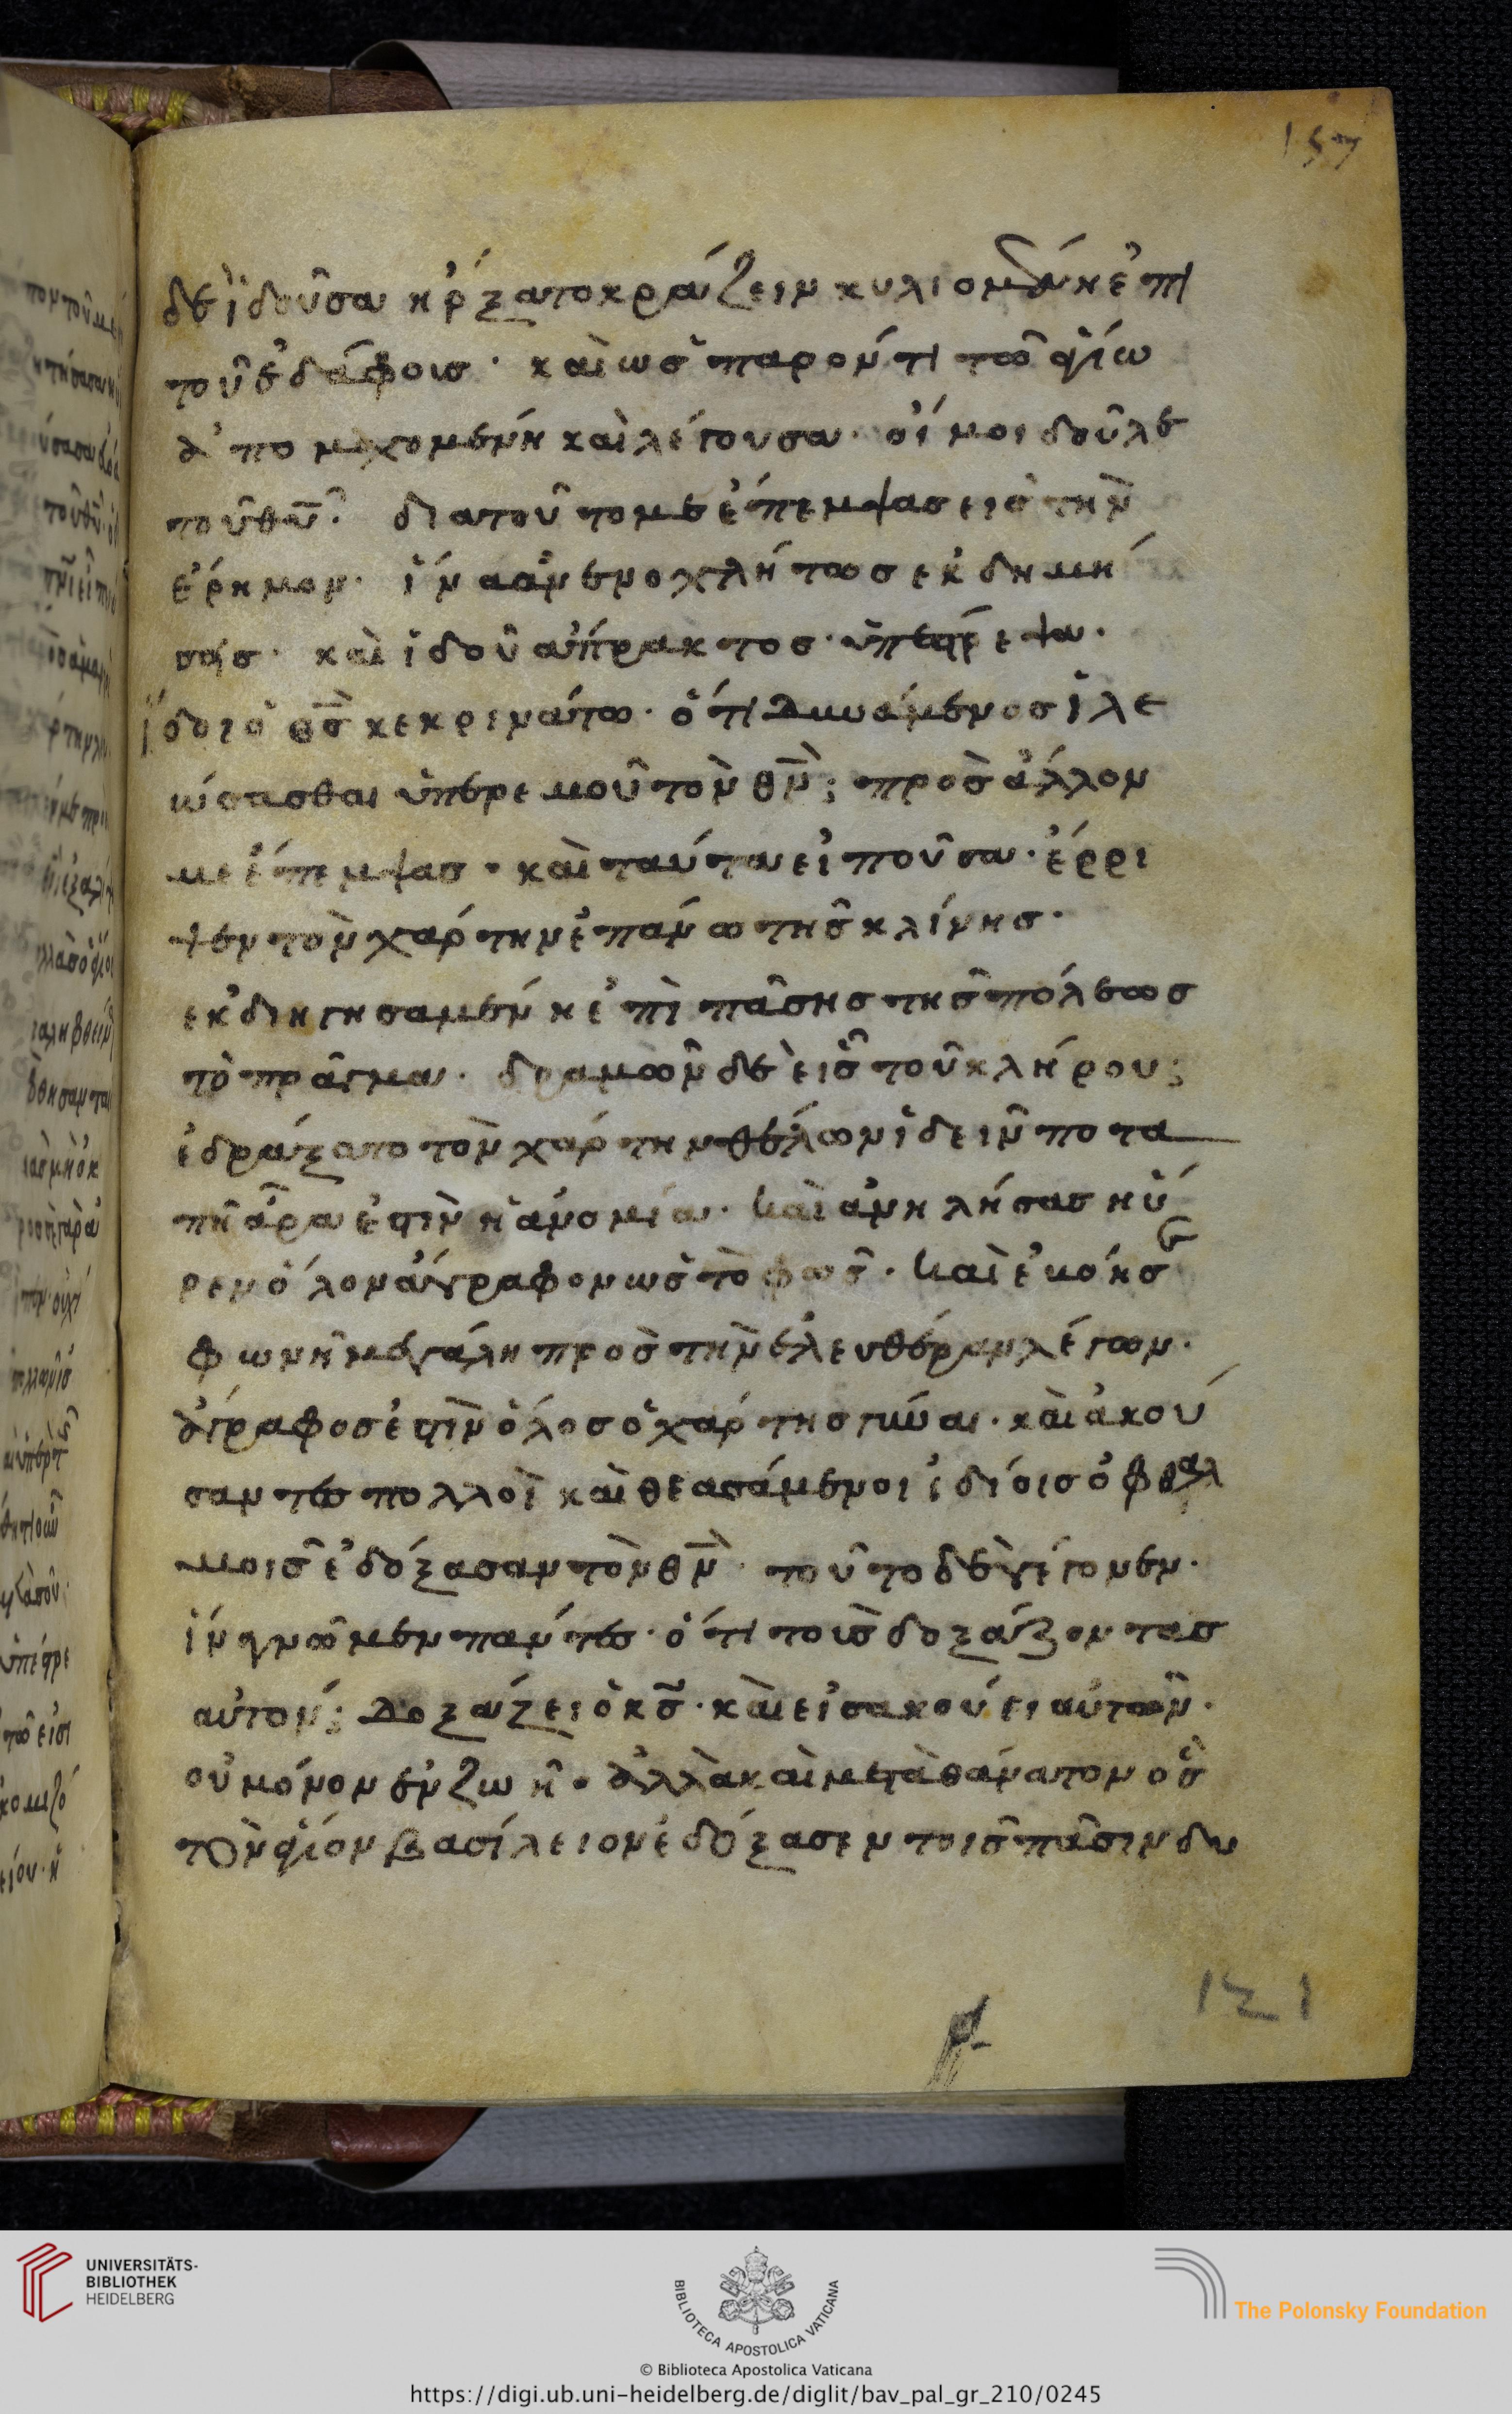 157
δὲ ἰδοῦσα ἠρξατο κράζειν κυλιομένη ἐπὶ
τοῦ ἐδάφοισ· καὶ ὡσ παρόντι τῶ ἁγίω
ἀπομαχομένη καὶ λέγουσα· οἴμοι δοῦλε
τοῦ θυ· διατοῦτο με ἔπεμψασ εἰσ τὴν
ἐρημον· ἵνα ἀνενοχλήτωσ ἐκδημή
σησ· καὶ ἰδοῦ ἄπρακτοσ ὑπέστρεψα·
ἴδοι ὁ θσ κεκρινάτω· ὅτι δυνάμενοσ ἱλε
ώσασθαι ὑπὲρ ἐμοῦ τὸν θν; πρὸσ ἄλλον
με ἔπεμψασ· καὶ ταύτα εἰποῦσα· ἔρρι
ψεν τὸν χάρτην ἐπάνω τῆσ κλίνησ·
ἐκδιηγησαμένη ἐπὶ πάσησ τῆσ πόλεωσ
τὸ πρᾶγμα· δραμῶν δὲ εἷσ τοῦ κλήρου;
ἐδράξατο τὸν χάρτην θέλων ἰδεῖν ποτα
πῆ ἆρα ἐστὶν ἡ ἀνομία· καὶ ἀνηλήσασ ηὗ
ρεν ὅλον ἄγραφον ὡσ τὸ φῶσ· καὶ ἐκόησ
φωνῆ μεγάλη πρὸσ τὴν ἐλευθέραν λέγων·
ἄγραφοσ ἐστὶν ὅλοσ ὁ χάρτησ γύναι· καὶ ἀκού
σαντεσ πολλοὶ καὶ θεασάμενοι ἰδίοισ ὀφθαλ
μοῖσ ἐδόξασαν τὸν θν· τοῦτο δὲ γέγονεν·
ἵνα γνῶμεν πάντεσ· ὅτι τοὺσ δοξάζοντασ
αὐτον; δοξάζει ὁ κσ· καὶ εἰσακούει αὐτῶν·
οὐ μόνον ἐν ζωῆ· ἀλλὰ καὶ μετὰ θάνατον ὃσ
τὸν ἅγιον βασίλειον ἐδόξασεν τοῖσ πᾶσιν δυ
121
UNIVERSITÄTS-
BIBLIOTHEK
HEIDELBERG
BIBLIOTECA APOSTOLICA VATICANA
The Polonsky Foundation
© Biblioteca Apostolica Vaticana
https://digi.ub.uni-heidelberg.de/diglit/bav_pal_gr_210/0245